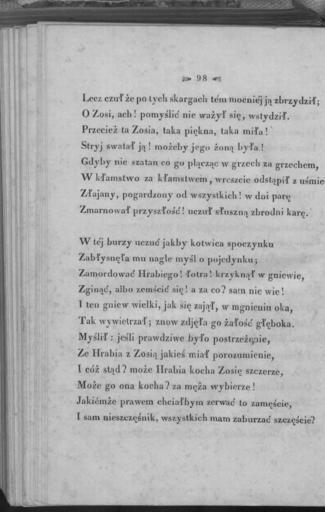 98
Lecz czuł że po tych skargach tém mocniéj ją zbrzydził;
O Zosi, ach! pomyślić nie ważył się, wstydził.
Przecież ta Zosia, taka piękna, taka miła!
Stryj swatał ją! możeby jego żoną była!
Gdyby nie szatan co go plącząc w grzech za grzechem,
W kłamstwo za kłamstwem, wreszcie odstąpił z uśmie
Złajany, pogardzony od wszystkich! w dni parę
Zmarnował przyszłość! uczuł słuszną zbrodni karę.
W téj burzy uczuć jakby kotwica spoczynku
Zabłysnęła mu nagle myśl o pojedynku;
Zamordować Hrabiego! łotra! krzyknął w gniewie,
Zginąć, albo zemścić się! a za co? sam nie wie!
I ten gniew wielki, jak się zajął, w mgnieniu oka,
Tak wywietrzał; znow zdjęła go żałość głęboka.
Myślił: jeśli prawdziwe było postrzeżenie,
Że Hrabia z Zosią jakieś miał porozumienie,
I cóż ztąd? może Hrabia kocha Zosię szczerze,
Może go ona kocha? za męża wybierze!
Jakiémże prawem chciałbym zerwać to zamęście,
I sam nieszczęśnik, wszystkich mam zaburzać szczęście?